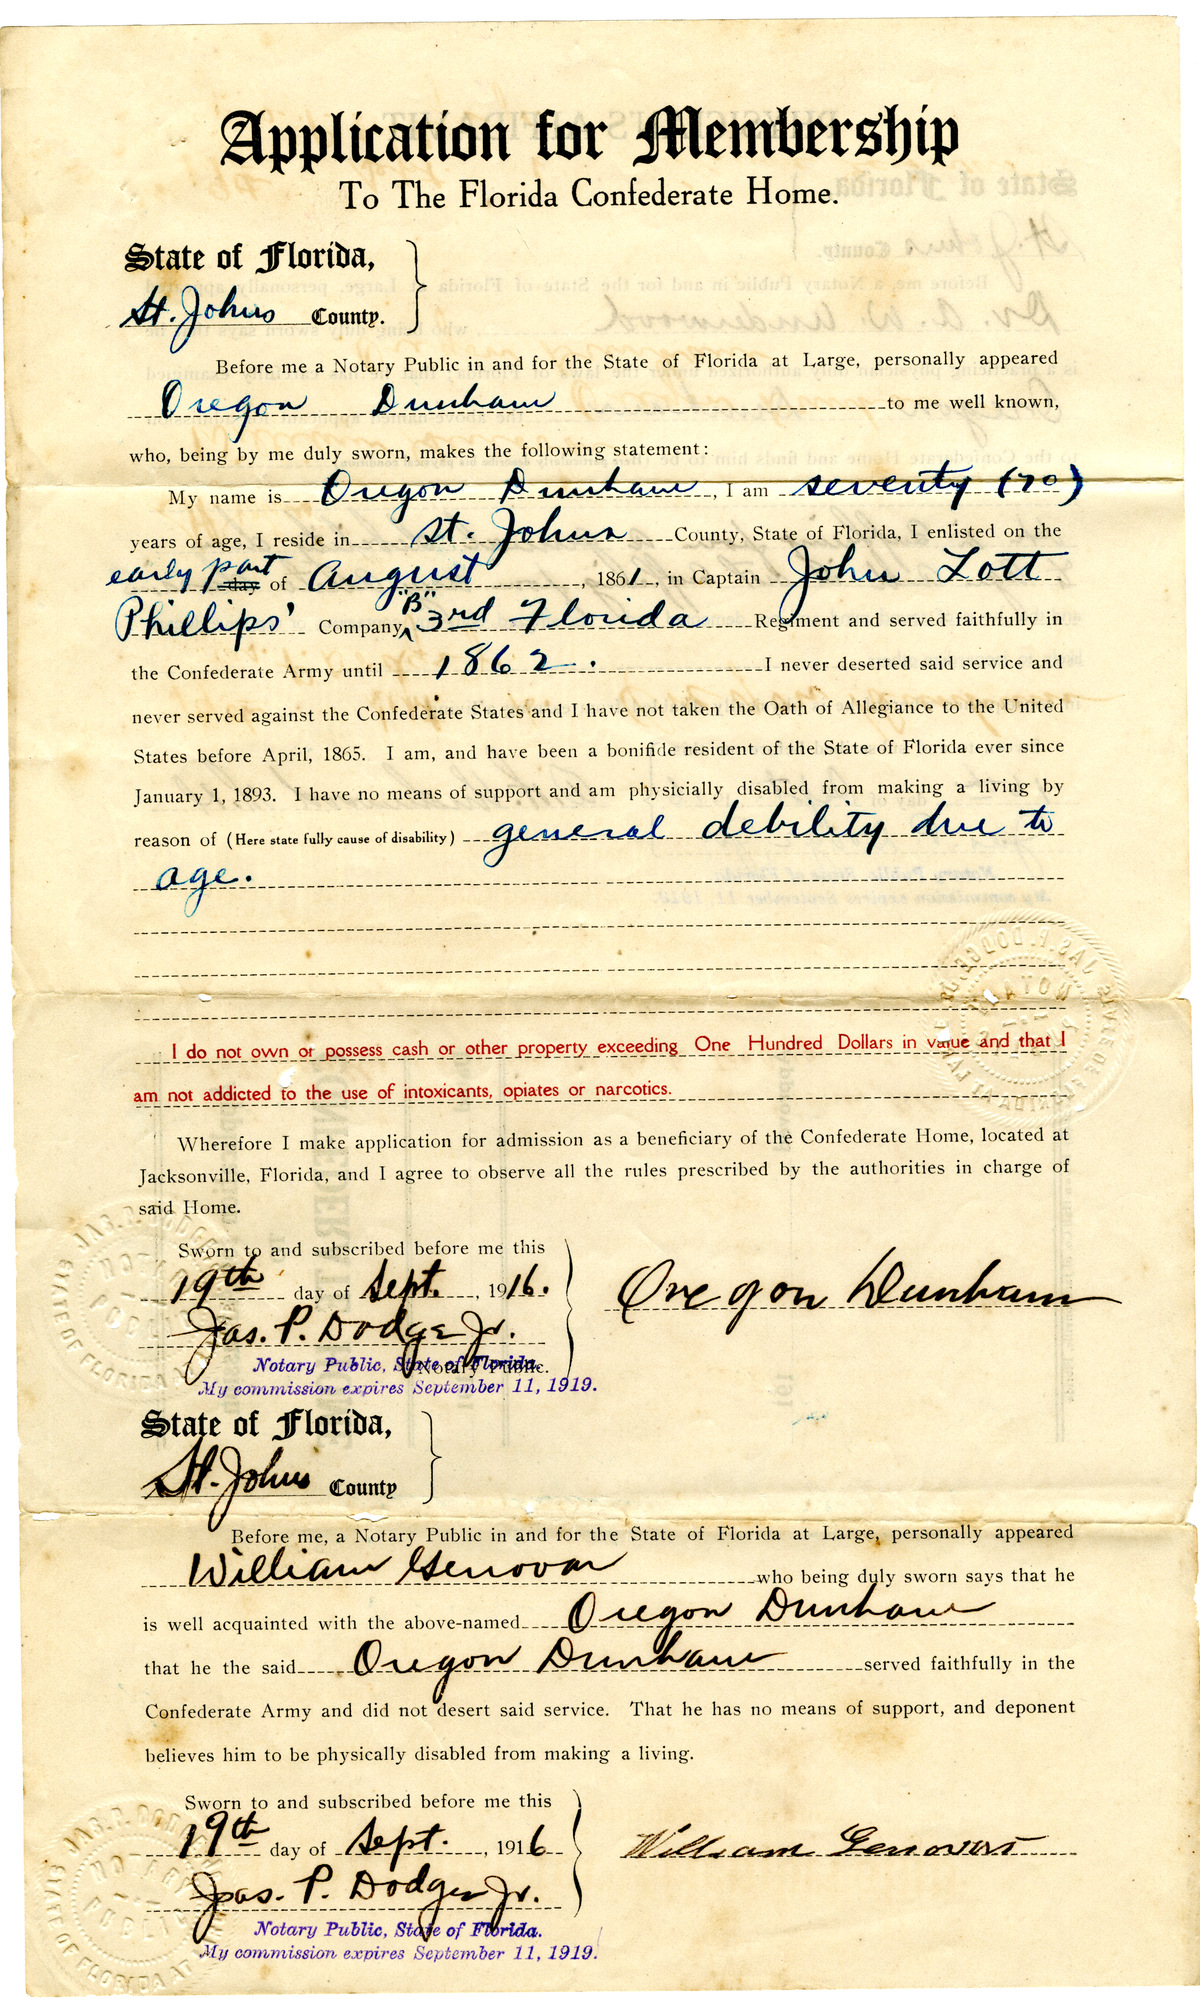 Application for Membership
To The Florida Confederate Home.
State of Florida,
St. Johns County.
Before me a Notary Public in and for the State of Florida at Large, personally appeared
Oregon Dunham to me well known,
who, being by me duly sworn, makes the following statement:
My name is Oregon Dunham, I am seventy (70)
years of age, I reside in St. Johns County, State of Florida, I enlisted on the
early part day of August, 1861, in Captain John Lott
Phillips' Company "B" 3rd Florida Regiment and served faithfully in
the Confederate Army until 1862. I never deserted said service and
never served against the Confederate States and I have not taken the Oath of Allegiance to the United
States before April, 1865. I am, and have been a bonifide resident of the State of Florida ever since
January 1, 1893. I have no means of support and am physicially disabled from making a living by
reason of (Here state fully cause of disability) general debility due to
age.
I do not own or possess cash or other property exceeding One Hundred Dollars in value and that I
am not addicted to the use of intoxicants, opiates or narcotics.
Wherefore I make application for admission as a beneficiary of the Confederate Home, located at
Jacksonville, Florida, and I agree to observe all the rules prescribed by the authorities in charge of
said Home.
Sworn to and subscribed before me this
19th day of Sept., 1916. Oregon Dunham
Jas. P. Dodge Jr.
Notary Public, State of Florida. Notary Public.
My commission expires September 11, 1919.
State of Florida,
St. Johns County
Before me, a Notary Public in and for the State of Florida at Large, personally appeared
William Genovar who being duly sworn says that he
is well acquainted with the above-named Oregon Dunham
that he the said Oregon Dunham served faithfully in the
Confederate Army and did not desert said service. That he has no means of support, and deponent
believes him to be physically disabled from making a living.
Sworn to and subscribed before me this
19th day of Sept., 1916 William Genovar
Jas. P. Dodge Jr.
Notary Public, State of Florida.
My commission expires September 11, 1919.